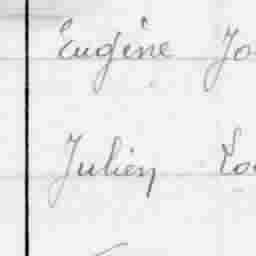 Eugène Jo
Julien Lo